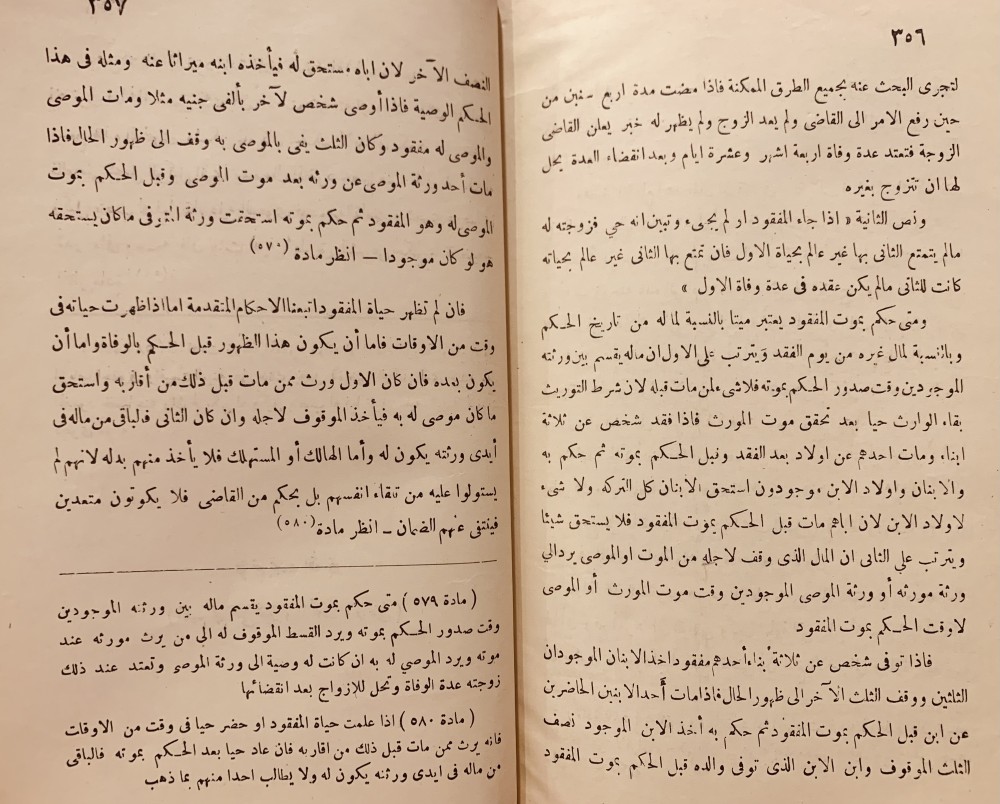 ٣٥٦
لتجرى البحث عنه بجميع الطرق الممكنة فاذا مضت مدة اربع سنين من
حين رفع الامر الى القاضى ولم يعد الزوج ولم يظهر له خبر يعلن القاضى
الزوجة فتعتد عدة وفاة اربعة اشهر وعشرة ايام وبعد انقضاء العدة يحل
لها ان تتزوج بغيره
ونص الثانية « اذا جاء المفقود او لم يجىء وتبين انه حي فزوجته له
مالم يتمتع الثانى بها غير عالم بحياة الاول فان تمتع بها الثانى غير عالم بحياته
كانت للثانى مالم يكن عقده فى عدة وفاة الاول »
ومتى حكم بموت المفقود يعتبر ميتا بالنسبة لما له من تاريخ الحكم
وبالنسبة لمال غيره من يوم الفقد ويترتب على الاول ان ماله يقسم بين ورثته
الموجودين وقت صدور الحكم بموته فلا شىء لمن مات قبله لان شرط التوريث
بقاء الوارث حيا بعد تحقق موت المورث فاذا فقد شخص عن ثلاثة
ابناء ومات احدهم عن اولاد بعد الفقد وقبل الحكم بموته ثم حكم به
والابنان واولاد الابن موجودون استحق الابنان كل التركه ولا شىء
لاولاد الابن لان اباهم مات قبل الحكم بموت المفقود فلا يستحق شيئا
ويترتب على الثانى ان المال الذى وقف لاجله من الموت او الموصى يرد الي
ورثة مورثه أو ورثة الموصى الموجودين وقت موت المورث أو الموصى
لا وقت الحكم بموت المفقود
فاذا توفى شخص عن ثلاثة ابناء أحدهم مفقود اخذ الابنان الموجودان
الثلثين ووقف الثلث الآخر الى ظهور الحال فاذا مات أحد الابنين الحاضرين
عن ابن قبل الحكم بموت المفقود ثم حكم به أخذ الابن الموجود نصف
الثلث الموقوف وابن الابن الذى توفى والده قبل الحكم بموت المفقود
٣٥٧
النصف الآخر لان اباه مستحق له فيأخذه ابنه ميراثا عنه ومثله فى هذا
الحكم الوصية فاذا أوصى شخص لآخر بألفى جنيه مثلا ومات الموصى
والموصى له مفقود وكان الثلث يفى بالموصى به وقف الى ظهور الحال فاذا
مات أحد ورثة الموصى عن ورثه بعد موت الموصى وقبل الحكم بموت
الموصى له وهو المفقود ثم حكم بموته استحقت ورثة المتوفى ما كان يستحقه
هو لو كان موجودا — انظر مادة (٥٧٩)
فان لم تظهر حياة المفقود اتبعنا الاحكام المتقدمة اما اذا ظهرت حياته فى
وقت من الاوقات فاما أن يكون هذا الظهور قبل الحكم بالوفاة واما أن
يكون بعده فان كان الاول ورث ممن مات قبل ذلك من أقاربه واستحق
ما كان موصى له به فيأخذ الموقوف لاجله وان كان الثانى فالباقى من ماله فى
أيدى ورثته يكون له وأما الهالك أو المستهلك فلا يأخذ منهم بدله لانهم لم
يستولوا عليه من تلقاء انفسهم بل بحكم من القاضى فلا يكونون متعدين
فينتفى عنهم الضمان — انظر مادة (٥٨٠)
( مادة ٥٧٩ ) متى حكم بموت المفقود يقسم ماله بين ورثته الموجودين
وقت صدور الحكم بموته ويرد القسط الموقوف له الى من يرث مورثه عند
موته ويرد الموصي له به ان كانت له وصية الى ورثة الموصى وتعتد عند ذلك
زوجته عدة الوفاة وتحل للازواج بعد انقضائها
( مادة ٥٨٠ ) اذا علمت حياة المفقود او حضر حيا فى وقت من الاوقات
فانه يرث ممن مات قبل ذلك من اقاربه فان عاد حيا بعد الحكم بموته فالباقى
من ماله فى ايدى ورثته يكون له ولا يطالب احدا منهم بما ذهب